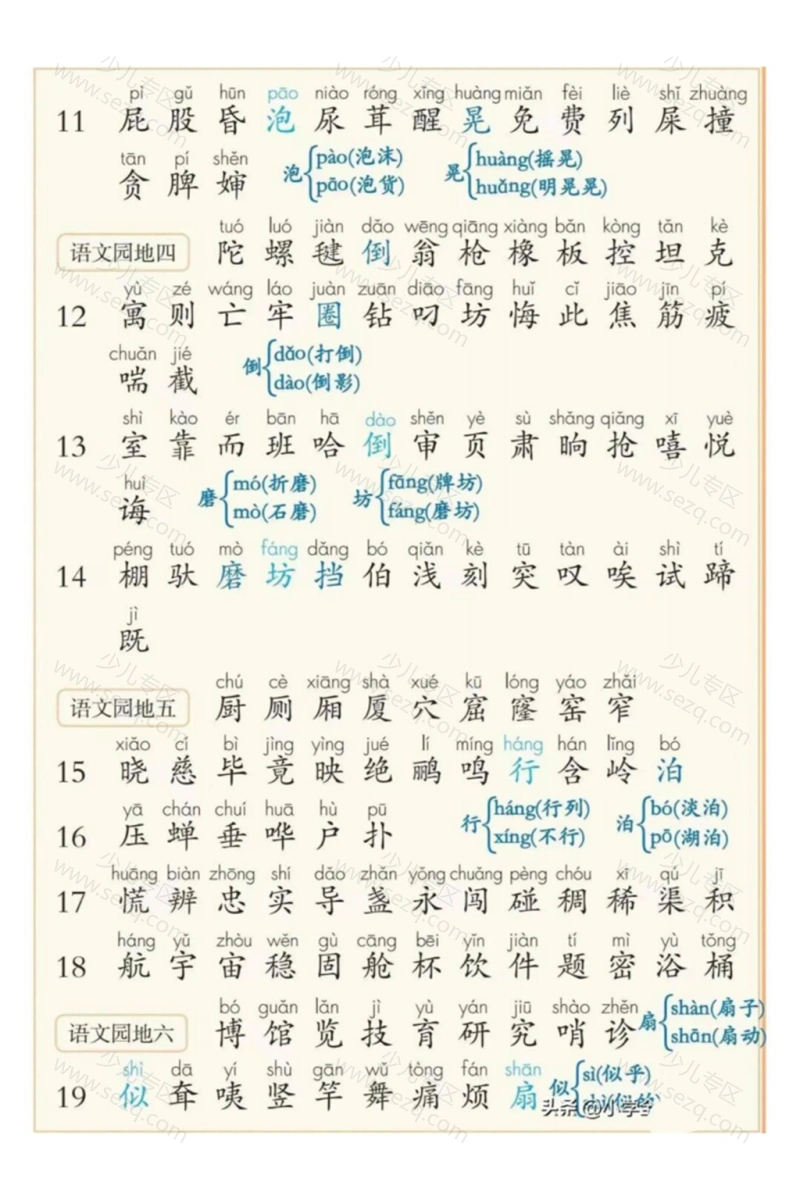 pì gǔ hūn pāo niào róng xǐng huàng miǎn fèi liè shǐ zhuàng
11 屁 股 昏 泡 尿 茸 醒 晃 免 费 列 屎 撞
tān pí shěn
贪 脾 婶 泡 pào(泡沫) pāo(泡货) 晃 huàng(摇晃) huǎng(明晃晃)
tuó luó jiàn dǎo wēng qiāng xiàng bǎn kòng tǎn kè
语文园地四 陀 螺 毽 倒 翁 枪 橡 板 控 坦 克
yù zé wáng láo juàn zuān diāo fāng huǐ cǐ jiāo jīn pí
12 寓 则 亡 牢 圈 钻 叼 坊 悔 此 焦 筋 疲
chuǎn jié
喘 截 倒 dǎo(打倒) dào(倒影)
shì kào ér bān hā dào shěn yè sù shǎng qiǎng xī yuè
13 室 靠 而 班 哈 倒 审 页 肃 晌 抢 嘻 悦
huì
诲 磨 mó(折磨) mò(石磨) 坊 fāng(牌坊) fáng(磨坊)
péng tuó mò fáng dǎng bó qiǎn kè tū tàn ài shì tí
14 棚 驮 磨 坊 挡 伯 浅 刻 突 叹 唉 试 蹄
jì
既
chú cè xiāng shà xué kū lóng yáo zhǎi
语文园地五 厨 厕 厢 厦 穴 窟 窿 窑 窄
xiǎo cí bì jìng yìng jué lí míng háng hán lǐng bó
15 晓 慈 毕 竟 映 绝 鹂 鸣 行 含 岭 泊
yā chán chuí huā hù pū
16 压 蝉 垂 哗 户 扑 行 háng(行列) xíng(不行) 泊 bó(淡泊) pō(湖泊)
huāng biàn zhōng shí dǎo zhǎn yǒng chuǎng pèng chóu xī qú jī
17 慌 辨 忠 实 导 盏 永 闯 碰 稠 稀 渠 积
háng yǔ zhòu wěn gù cāng bēi yǐn jiàn tí mì yù tǒng
18 航 宇 宙 稳 固 舱 杯 饮 件 题 密 浴 桶
bó guǎn lǎn jì yù yán jiū shào zhěn
语文园地六 博 馆 览 技 育 研 究 哨 诊 扇 shàn(扇子) shān(扇动)
shì dā yí shù gān wǔ tòng fán shān
19 似 耷 咦 竖 竿 舞 痛 烦 扇 似 sì(似乎)
头条 @小学
少儿专区
www.sezq.com